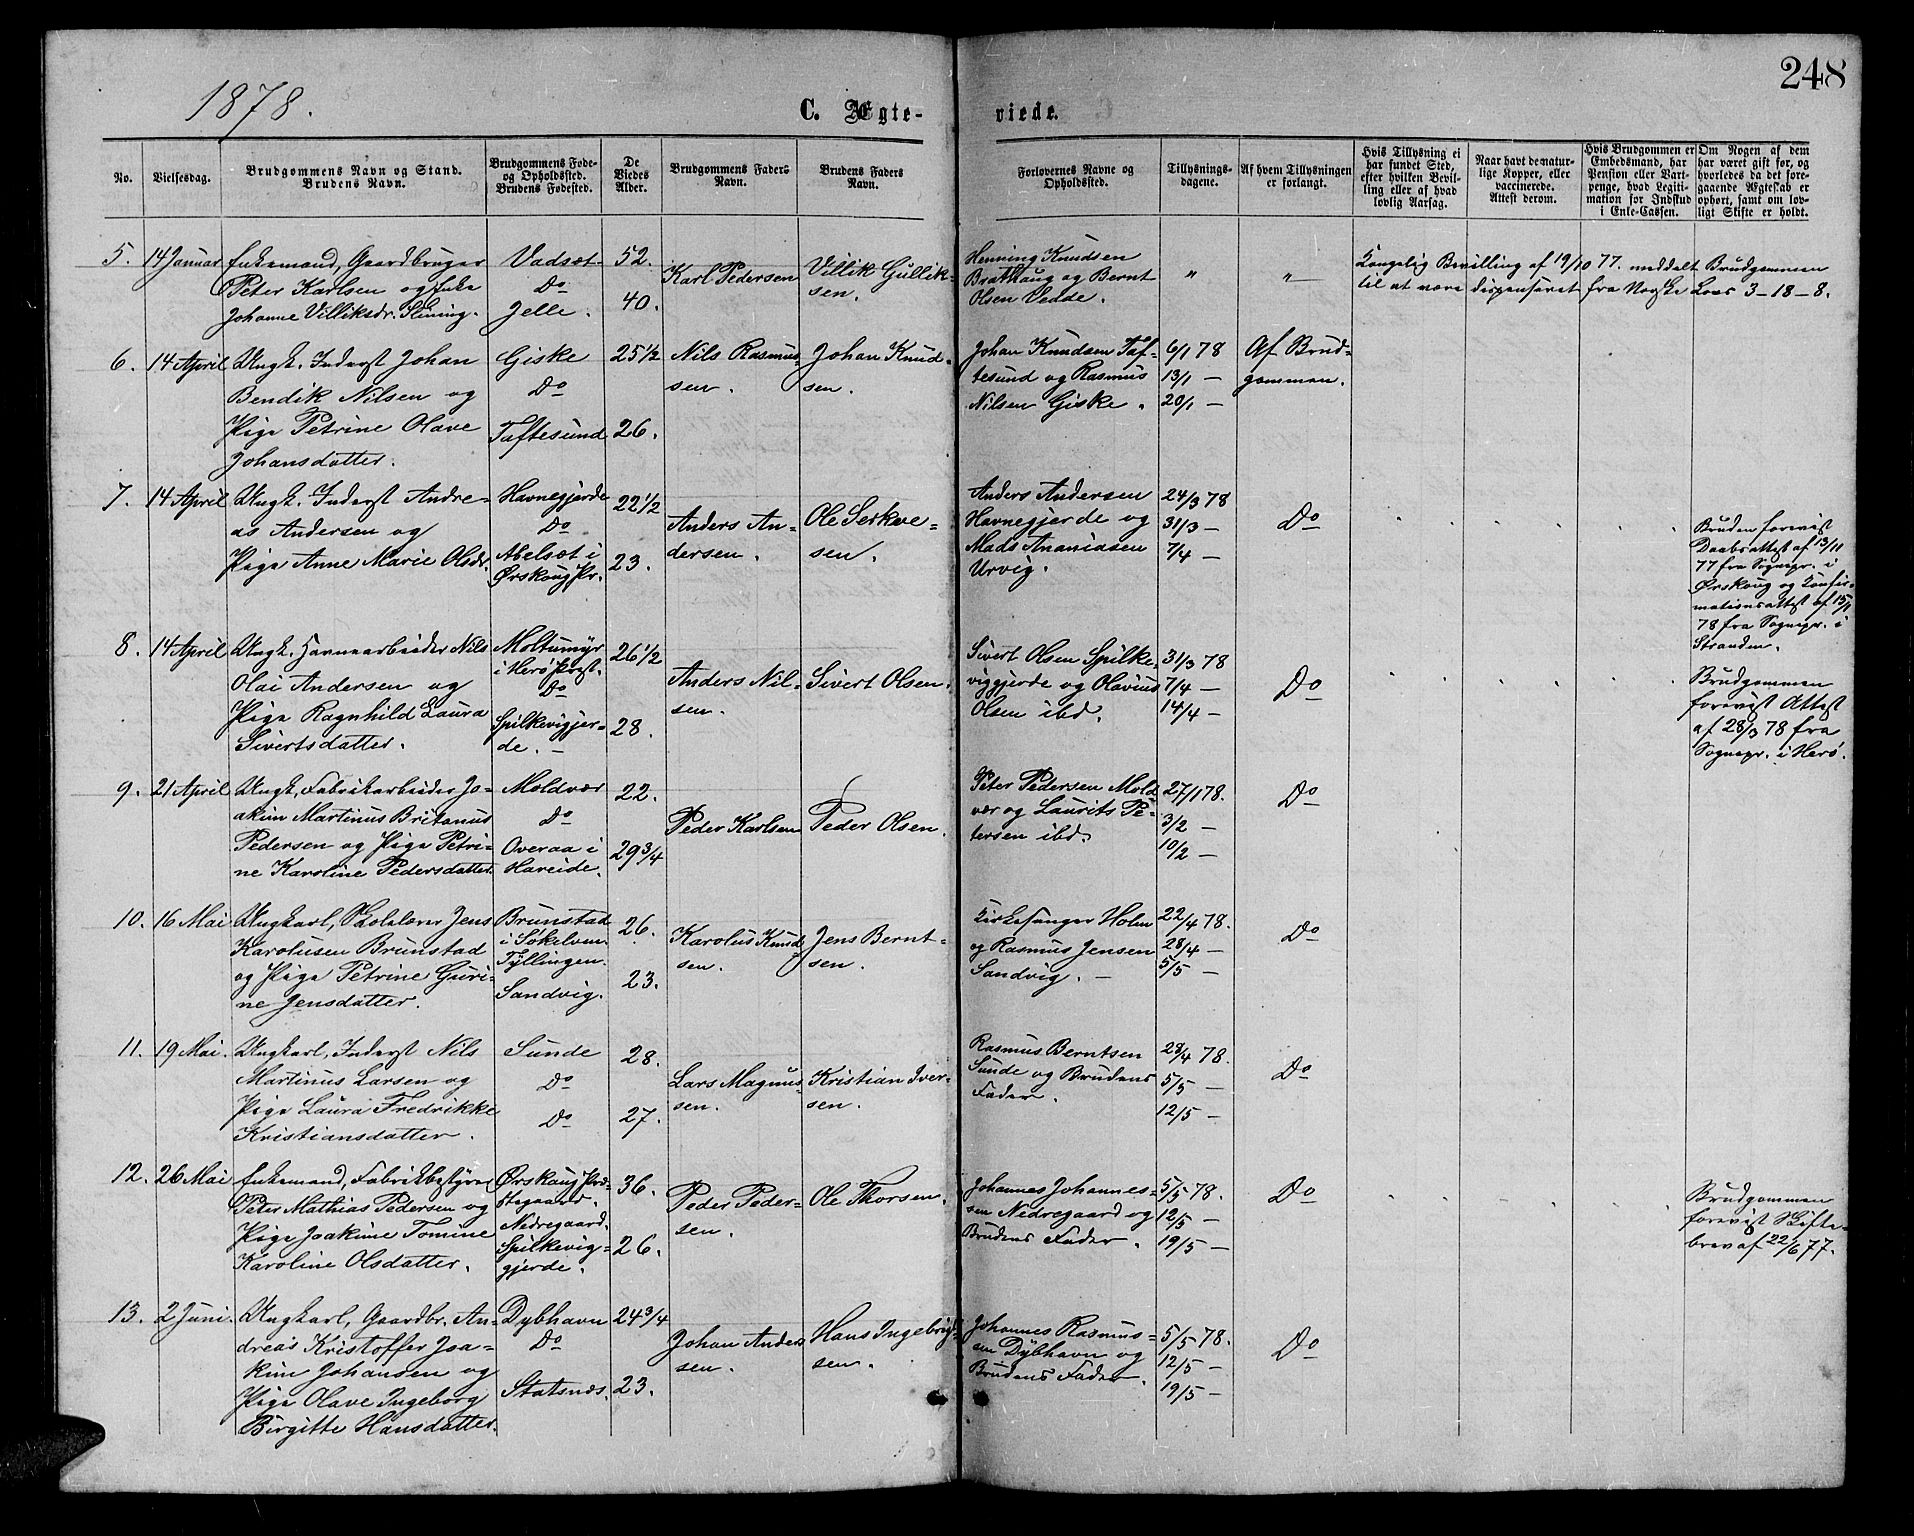 248
1878.
C. Ægte-
viede.
No.
Vielsesdag.
Brudgommens Navn og Stand.
Brudens Navn.
Brudgommens Føde-
og Opholdssted.
Brudens Fødested.
De
Viedes
Alder.
Brudgommens Faders
Navn.
Brudens Faders
Navn.
Forlovernes Navne og
Opholdssted.
Tillysnings-
dagene.
Af hvem Tillysningen
er forlangt.
Hvis Tillysning ei
har fundet Sted,
efter hvilken Bevil-
ling eller af hvad
lovlig Aarsag.
Naar havt de natur-
lige Kopper, eller
vaccinerede.
Attest derom.
Hvis Brudgommen er
Embedsmand, har
Pension eller Vart-
penge, hvad Legiti-
mation for Indskud
i Enke-Cassen.
Om Nogen af dem
har været gift før, og
hvorledes da det fore-
gaaende Ægteskab er
ophørt, samt om lov-
ligt Skifte er holdt.
5.
14 Januar
Enkemand, Gaardbruger
Peter Karlsen og Enke
Johanne Villiksdr. Slining.
Vadsæt
Do
Jelle.
52.
40.
Karl Pedersen
Villik Gullik-
sen.
Henning Knudsen
Bratthaug og Bernt
Olsen Vedde.
"
"
Kongelig Bevilling af 19/10 77. meddelt Brudgommen
til at være dispenseret fra Norske Lovs 3-18-8.
6.
14 April
Ungk. Inderst Johan
Bendik Nilsen og
Pige Petrine Olave
Johansdatter.
Giske
Do
Taftesund
25 1/2
26.
Nils Rasmus-
sen.
Johan Knud-
sen.
Johan Knudsen Taf-
tesund og Rasmus
Nilsen Giske.
6/1 78
13/1 —
20/1 —
Af Brud-
gommen.
7.
14 April
Ungk. Inderst Andre-
as Andersen og
Pige Anne Marie Olsdr.
Havnegjerde
Do
Abelsæt i
Ørskoug Pr.
22 1/2
23.
Anders An-
dersen.
Ole Serkve-
sen.
Anders Andersen
Havnegjerde og
Mads Ananiasen
Urvig.
24/3 78
31/3 —
7/4 —
Do
Bruden forevist
Daabsattest af 13/11
77 fra Sognepr. i
Ørskoug og Konfir-
mationsattest af 15/1
78 fra Sognepr. i
Stranden.
8.
14 April
Ungk. Havnearbeider Nils
Olai Andersen og
Pige Ragnhild Laura
Sivertsdatter.
Moltumyr
i Herø Prest.
Do
Spilkeviggjer-
de. —
26 1/2
28.
Anders Nil-
sen.
Sivert Olsen.
Sivert Olsen Spilke-
viggjerde og Olavius
Olsen ibd.
31/3 78
7/4 —
14/4 —
Do
Brudgommen
forevist Attest
af 28/3 78 fra
Sognepr. i Herö.
9.
21 April
Ungk. Fabrikarbeider Jo-
akim Martinus Britanus
Pedersen og Pige Petri-
ne Karoline Pedersdatter
Moldvær
Do
Overaa i
Hareide.
22.
29 3/4
Peder Karlsen
Peder Olsen.
Peter Pedersen Mold
vær og Laurits Pe-
tersen ibd.
27/1 78.
3/2 —
10/2 —
Do
10.
16 Mai
Ungkarl, Skolelærer Jens
Karolusen Brunstad
og Pige Petrine Guri-
ne Jensdatter.
Brunstad
i Søkelven
Tyllingen.
Sandvig.
26.
23.
Karolus Knud
sen.
Jens Bernt-
sen.
Kirkesanger Holm
og Rasmus Jensen
Sandvig. —
22/4 78.
28/4 —
5/5 —
Do
11.
19 Mai.
Ungkarl, Inderst Nils
Martinus Larsen og
Pige Laura Fredrikke
Kristiansdatter.
Sunde
Do
Do
28.
27.
Lars Magnus-
sen.
Kristian Iver-
sen.
Rasmus Berntsen
Sunde og Brudens
Fader.
28/4 78.
5/5 —
12/5 —
Do
12.
26 Mai
Enkemand, Fabrikbestyrer
Peter Mathias Pedersen og
Pige Joakime Tomine
Karoline Olsdatter.
Ørskoug Præ-
stegaard.
Nedregaard.
Spilkevig-
gjerde.
36.
26.
Peder Peder-
sen.
Ole Thorsen.
Johannes Johannes-
sen Nedregaard og
Brudens Fader.
5/5 78.
12/5 —
19/5 —
Do
Brudgommen
forevist Skifte-
brev af 22/6 77.
13.
2 Juni.
Ungkarl, Gaardbr. An-
dreas Kristoffer Joa-
kim Johansen og
Pige Olave Ingeborg
Birgitte Hansdatter.
Dybhavn
Do
Statsnæs.
24 3/4
23.
Johan Anders
sen.
Hans Ingebrigt-
sen.
Johannes Rasmus-
sen Dybhavn og
Brudens Fader.
5/5 78.
12/5 —
19/5 —
Do